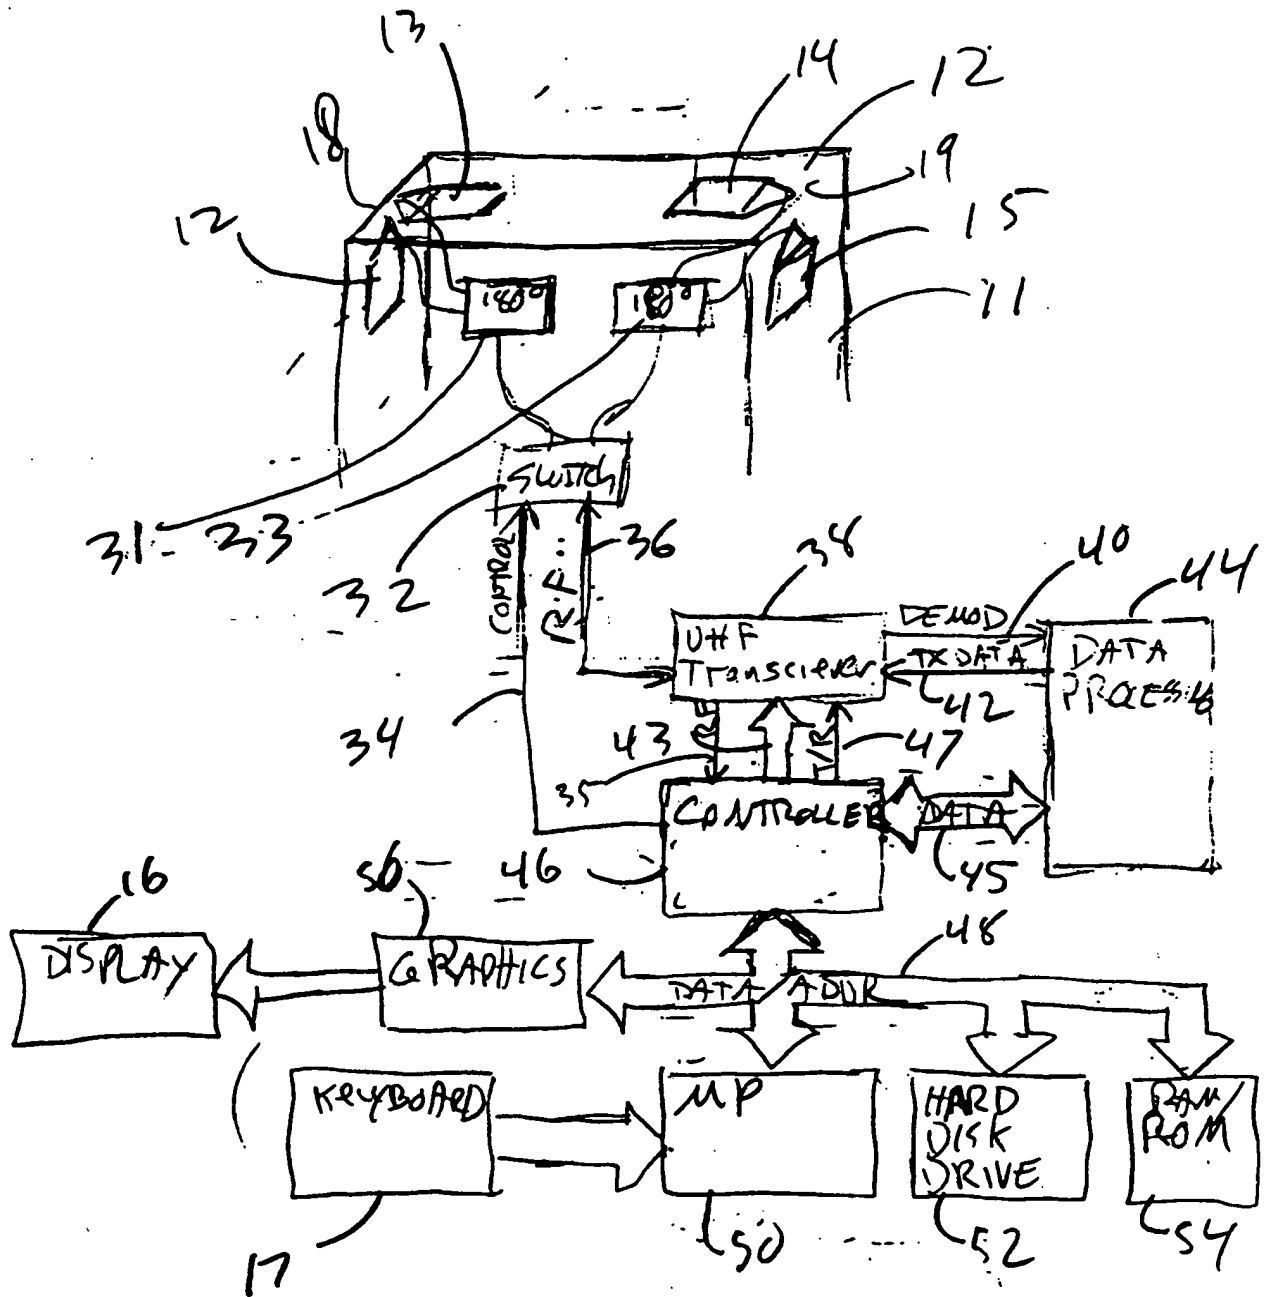 13
14
12
18
19
12
15
11
180°
180°
SWITCH
31
33
32
CONTROL
R.F.
36
38
40
44
34
UHF
Transciever
DEMOD
TX DATA
42
DATA
PROCESSING
43
35
T/R
47
CONTROLLER
DATA
45
46
16
56
48
DISPLAY
GRAPHICS
DATA / ADDR
KEYBOARD
MP
HARD
DISK
DRIVE
RAM/
ROM
17
50
52
54